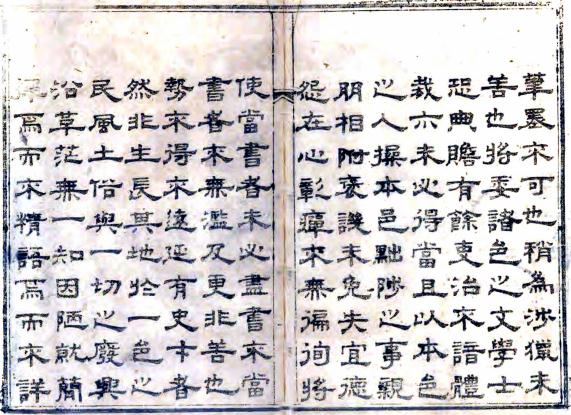 筆墨不可也稍為涉獵未
善也將委諸邑之文學士
恐典贍有餘吏治不語體
裁亦未必得當且以本邑
之人操本邑黜陟之事親
朋相附褒譏未免失宜德
怨在心彰癉不無徧徇將
使當書者未必盡書不當
書者不無濫及更非善也
勢不得不延有史才者
然非生長其地於一邑之
民風土俗與一切之廢興
沿革茫無一知因陋就簡
擇焉而不精語焉而不詳